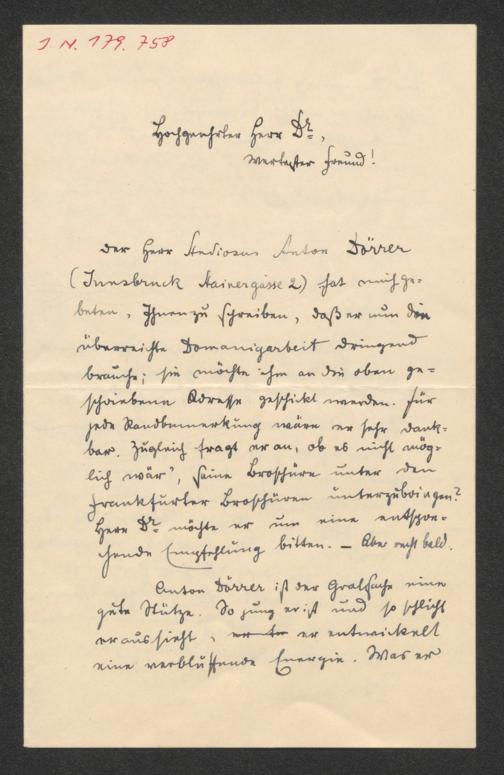 J. N. 179.758
Hochgeehrter Herr Dr.,
Wertester Freund!
Der Herr Studiosus Anton Dörrer
(Innsbruck Hainergasse 2) hat mich ge-
beten, Ihnen zu schreiben, daß er nun die
überreichte Domanigarbeit dringend
brauche; sie möchte ihm an die oben ge-
schriebene Adresse geschickt werden. Für
jede Randbemerkung wäre er sehr dank-
bar. Zugleich fragt er an, ob es nicht mög-
lich wär', seine Broschüre unter den
Frankfurter Broschüren unterzubringen?
Herr Dr. möchte er um eine entspre-
chende Empfehlung bitten. – Aber recht bald.
Anton Dörrer ist der Gralsache eine
gute Stütze. So jung er ist und so schlicht
er aussieht, er entwickelt
eine verblüffende Energie. Was er